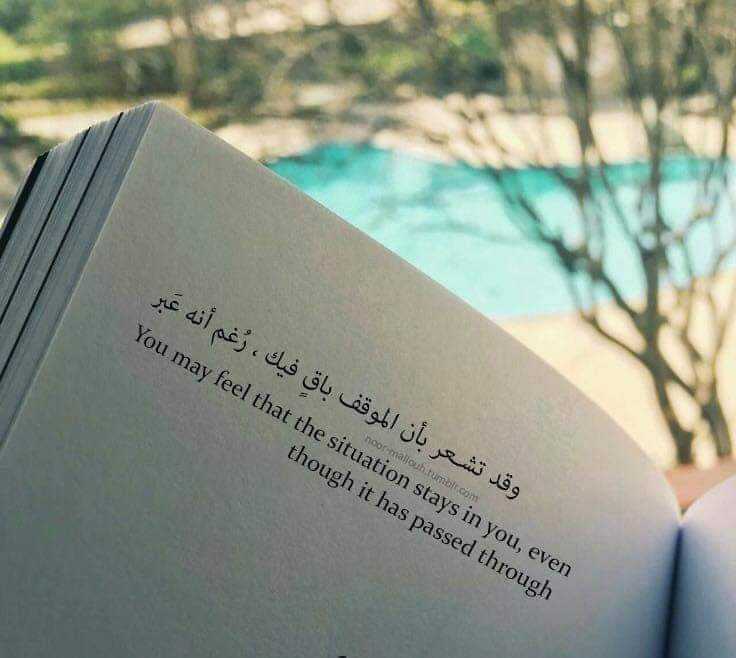 وقد تشعر بأن الموقف باقٍ فيك ، رُغم أنه عَبر
noor-mallouh.tumblr.com
You may feel that the situation stays in you, even
though it has passed through